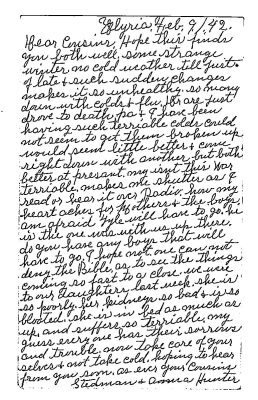 Elyria Feb, 9/42.
Dear Cousins, Hope this finds
you both well, some strange
winter no cold weather till just
of late & such sudden changes
makes it so unhealthy. so many
down with colds & flu. We are just
drove to death, pa & I have been
having such terriable colds could
not seem to get them broken up
would seem little better & come
right down with another but both
better at presant, my isnt this war
terriable, makes me shutter as I
read or hear it over Radio, how my
heart aches for Mothers & the boys.
am afraid Lyle will have to go, he
is the one with us up there.
do you have any boys that will
have to go, I hope not, one can not
deny the Bible, as to see the things
coming so fast to a close we were
to our daughters last week, she is
so poorly, her kidneys so bad & is so
bloated. she is in bed as much as
up, and suffers so terriable, my
guess every one has their sorrows
and trouble, now take care of your
selves & not take cold, hoping to hear
from you soon, as ever your Cousins
Stedman & Annica Hunter